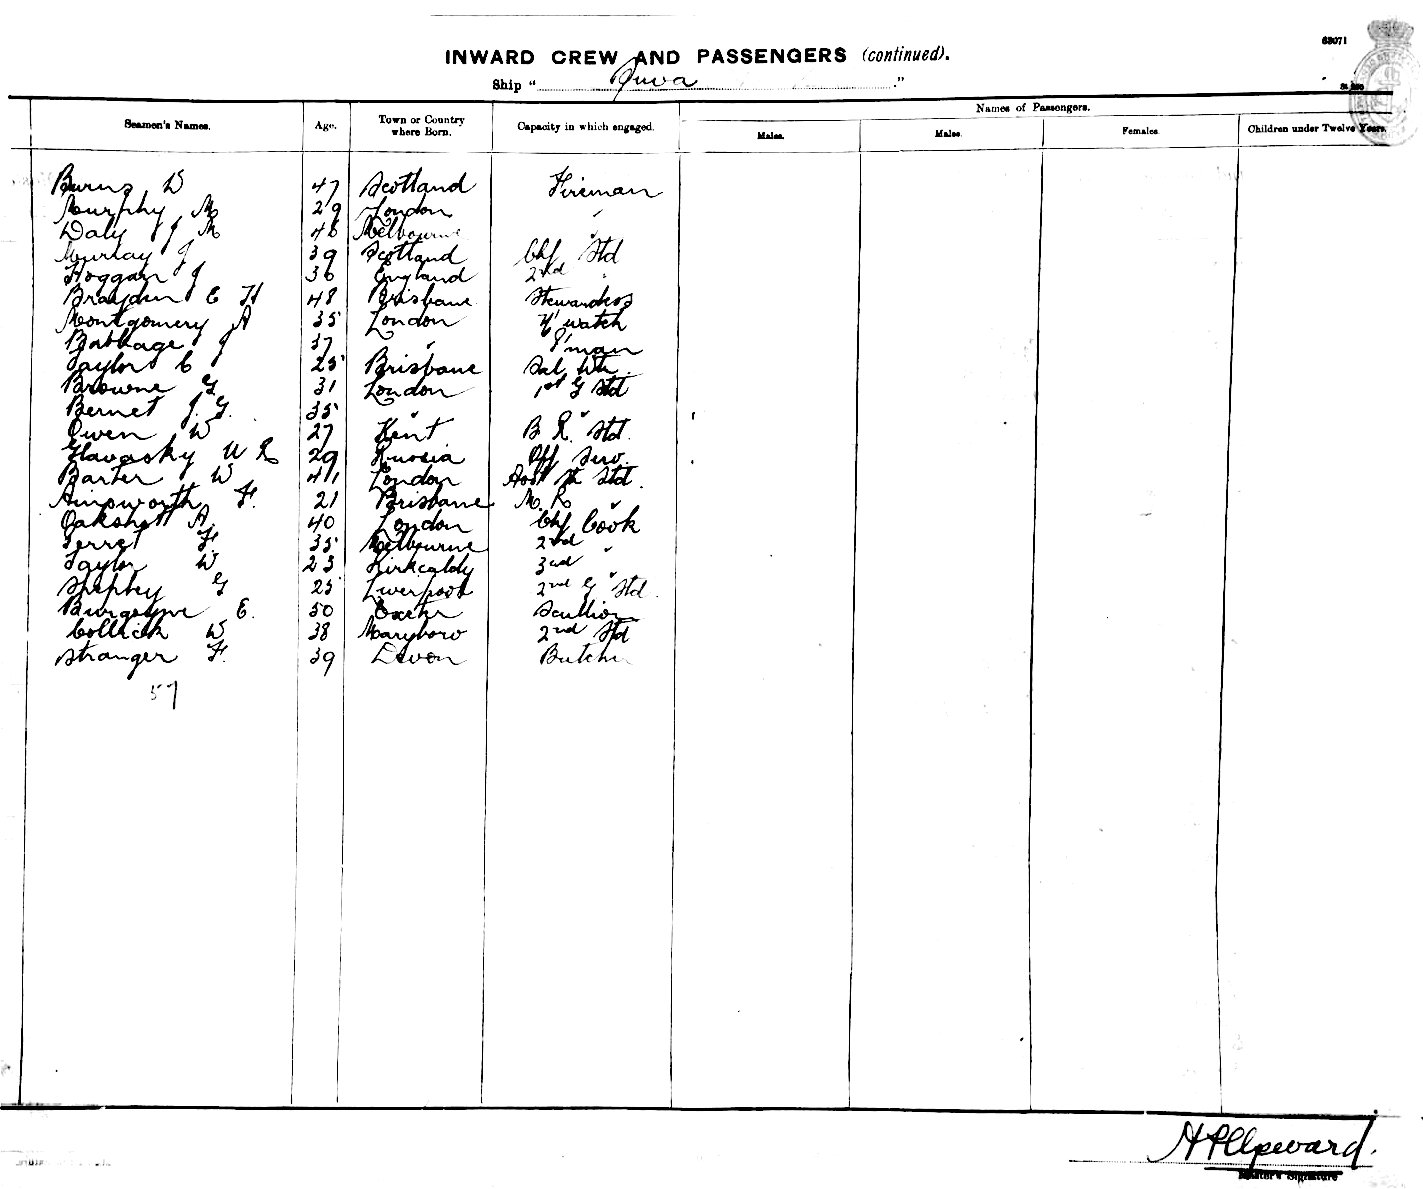 63071
INWARD CREW AND PASSENGERS (continued).
Ship " Suva ."
Names of Passengers.
Seamen's Names. Age. Town or Country where Born. Capacity in which engaged. Males. Males. Females. Children under Twelve Years.
Burns W 47 Scotland Fireman
Murphy M 29 London "
Daly J M 46 Melbourne "
Murray J 39 Scotland Chf Std
Hoggan J 36 England 2nd "
Braydin E H 48 Brisbane Stewardess
Montgomery A 35 London N' watch
Babbage J 37 " P'man
Taylor C 25 Brisbane Sal Wtr.
Browne G 31 London 1st G Std
Bernet J. G. 35 " "
Owen W 27 Kent B. R. Std.
Glavasky W R 29 Russia Off Serv.
Barter W 41 London Asst Std.
Ainsworth F. 21 Brisbane M. R "
Oakshott A 40 London Chf Cook
Ferret F. 35 Melbourne 2nd "
Taylor W 23 Kirkcaldy 3rd "
G 25 Liverpool 2nd G Std.
Burgoyne E. 50 Exeter Scullion
Collick W 38 Maryboro 2nd Std
Stranger F. 39 Devon Butcher
57
Master's Signature